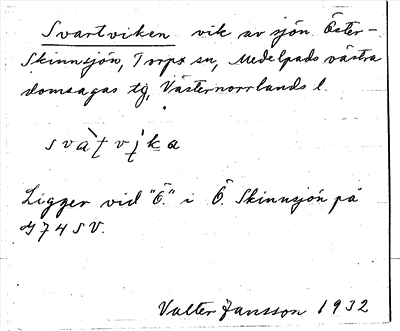 Svartviken vik av sjön Öster-
Skinnsjön, Torps sn, Medelpads västra
domsagas tg, Västernorrlands l.
Ligger vid "Ö." i Ö. Skinnsjön på
74 SV.
Valter Jansson 1932